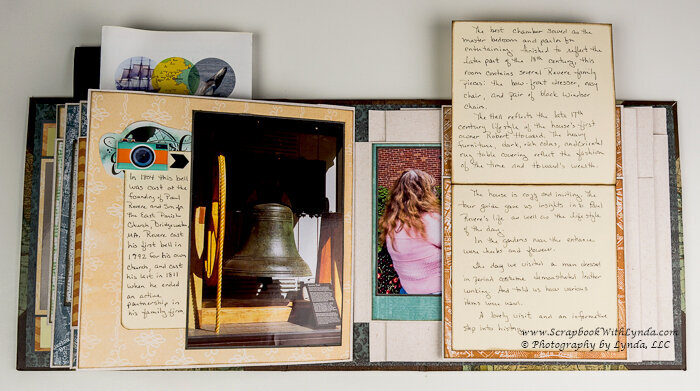 In 1804 this bell
was cast at the
foundry of Paul
Revere and Son for
The East Parish
Church, Bridgewater,
MA. Revere cast
his first bell in
1792 for his own
church, and cast
his last in 1811
when he ended
an active
partnership in
his family firm.
The best chamber served as the
master bedroom and parlor for
entertaining. Finished to reflect the
late part of the 18th century, this
room contains several Revere family
pieces: the bow front dresser, easy
chair, and pair of black Windsor
chairs.
The Hall reflects the late 17th
century lifestyle of the house's first
owner Robert Howard. The heavy
furniture, dark, rich colors, and oriental
rug table covering reflect the fashion
of the time and Howard's wealth.
The house is cozy and inviting. The
tour guide gave us insights into Paul
Revere's life as well as the life style
of the day.
In the gardens near the entrance
were herbs and flowers.
The day we visited a man dressed
in period costume demonstrated leather
working. And told us how various
items were used.
A lovely visit and an informative
step into history.
www.ScrapbookWithLynda.com
© Photography by Lynda, LLC